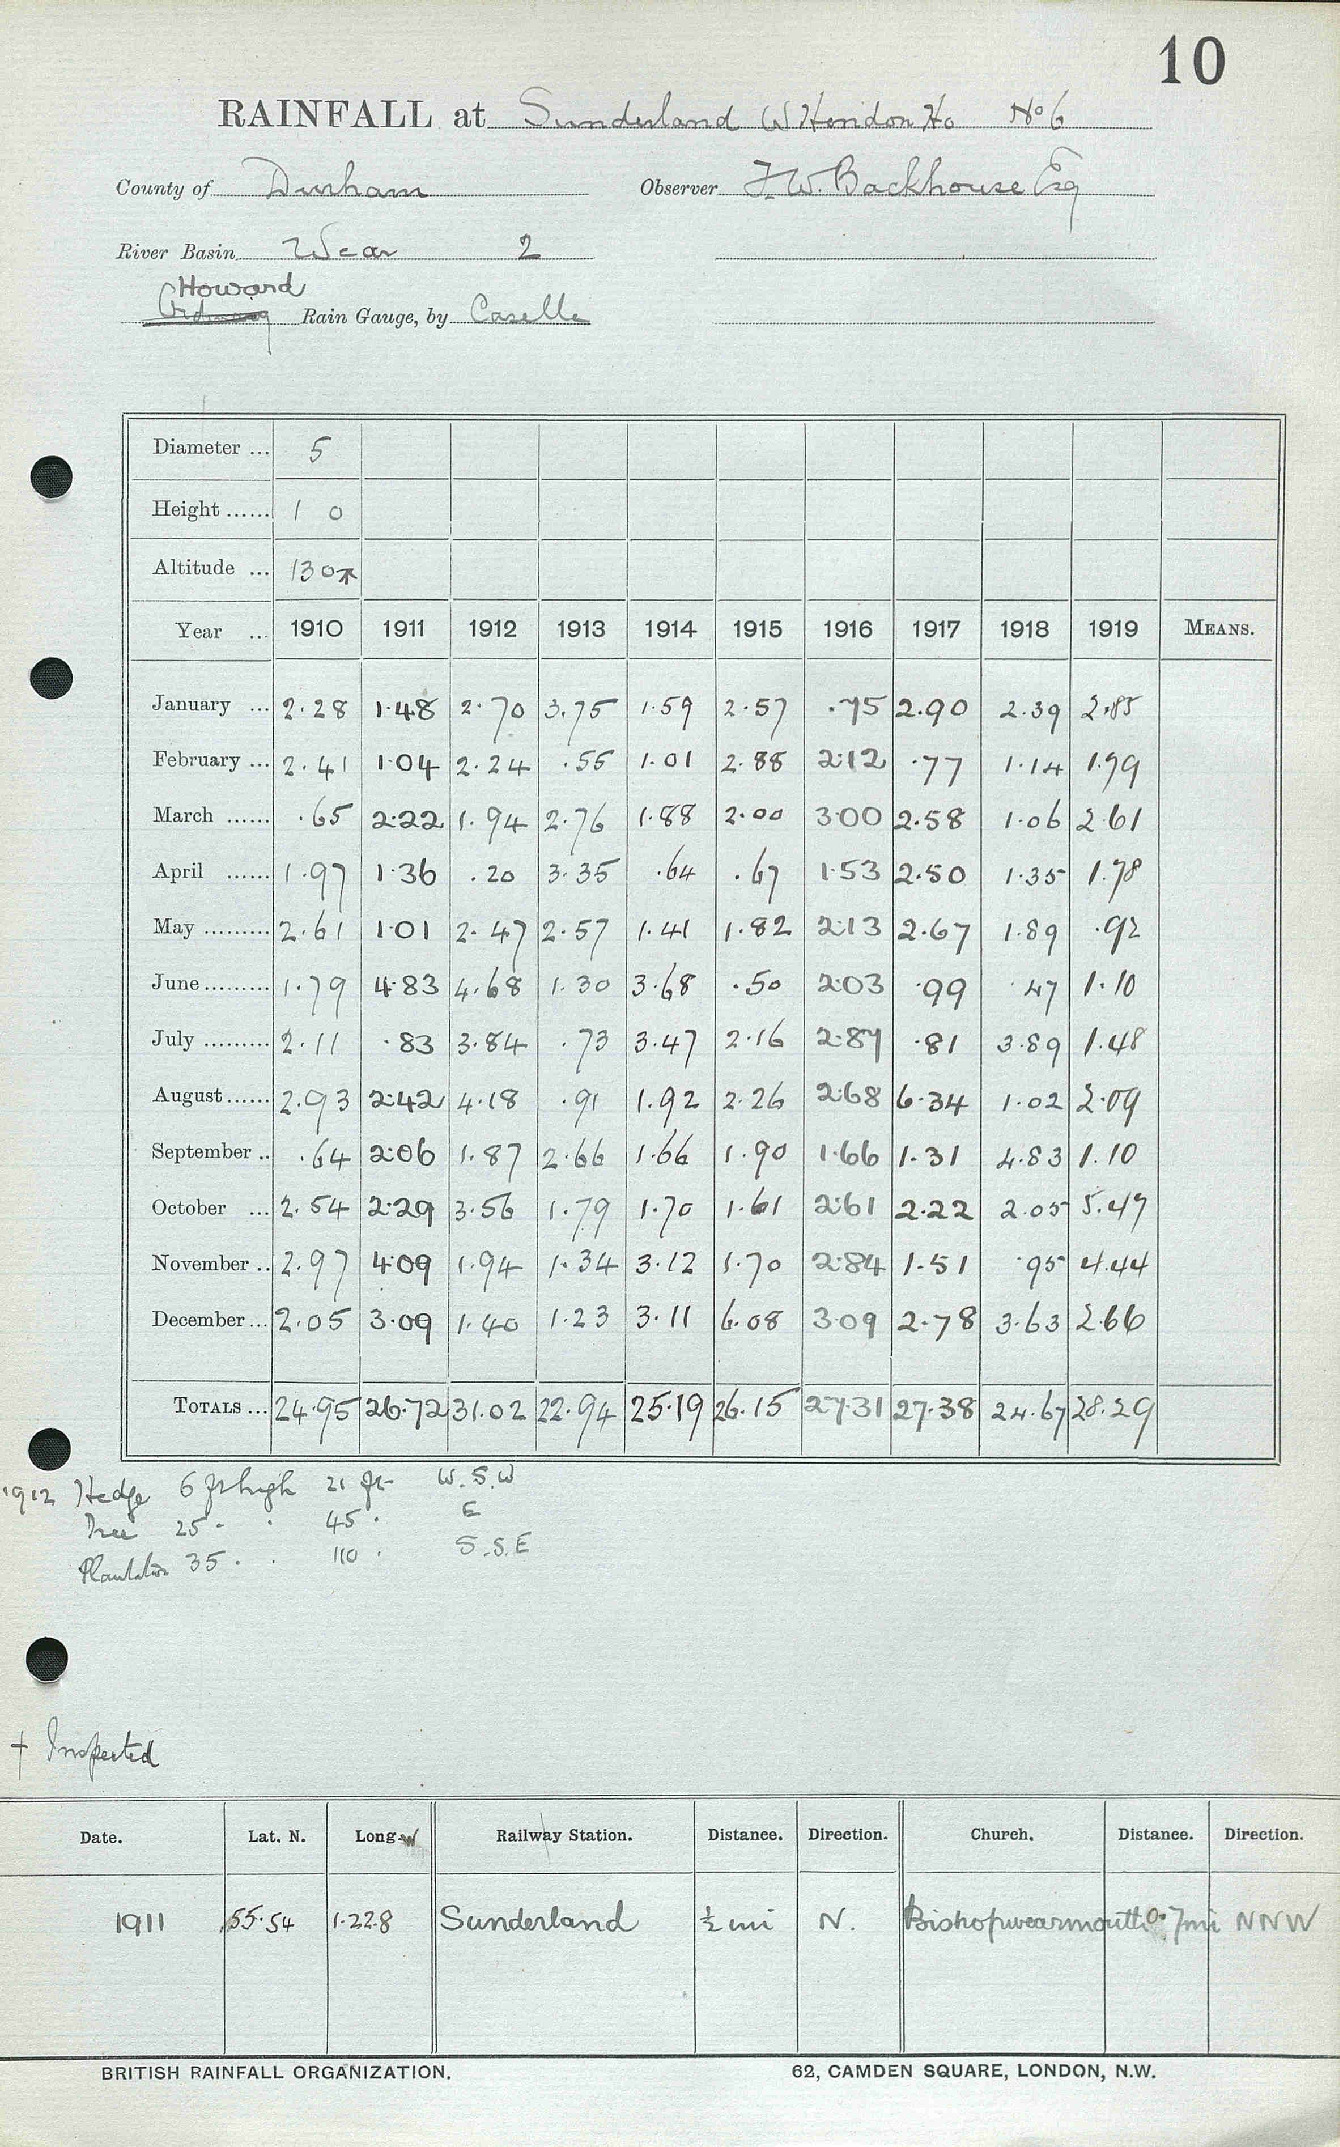 10
RAINFALL at Sunderland W Hendon Ho No 6
County of Durham Observer T. W. Backhouse Esq
River Basin Wear 2
Howard
Ordinary Rain Gauge, by Casella
Diameter ... 5
Height ...... 1 0
Altitude ... 130
Year ... 1910 1911 1912 1913 1914 1915 1916 1917 1918 1919 MEANS.
January ... 2.28 1.48 2.70 3.75 1.59 2.57 .75 2.90 2.39 2.85
February ... 2.41 1.04 2.24 .55 1.01 2.88 2.12 .77 1.14 1.79
March ...... .65 2.22 1.94 2.76 1.88 2.00 3.00 2.58 1.06 2.61
April ...... 1.97 1.36 .20 3.35 .64 .67 1.53 2.50 1.35 1.78
May ......... 2.61 1.01 2.47 2.57 1.41 1.82 2.13 2.67 1.89 .92
June ......... 1.79 4.83 4.68 1.30 3.68 .50 2.03 .99 .47 1.10
July ......... 2.11 .83 3.84 .73 3.47 2.16 2.87 .81 3.89 1.48
August ...... 2.93 2.42 4.18 .91 1.92 2.26 2.68 6.34 1.02 2.09
September .. .64 2.06 1.87 2.66 1.66 1.90 1.66 1.31 4.83 1.10
October ... 2.54 2.29 3.56 1.79 1.70 1.61 2.61 2.22 2.05 5.47
November .. 2.97 4.09 1.94 1.34 3.12 1.70 2.84 1.51 .95 4.44
December ... 2.05 3.09 1.40 1.23 3.11 6.08 3.09 2.78 3.63 2.66
TOTALS ... 24.95 26.72 31.02 22.94 25.19 26.15 27.31 27.38 24.67 28.29
1912 Hedge 6 ft high 21 ft W.S.W
Tree 25 " " 45 " E
Plantation 35 " " 110 " S.S.E
† Inspected
Date. Lat. N. Long. W Railway Station. Distance. Direction. Church. Distance. Direction.
1911 55.54 1.22.8 Sunderland ½ mi N. Bishopwearmouth 0.7 mi NNW
BRITISH RAINFALL ORGANIZATION. 62, CAMDEN SQUARE, LONDON, N.W.